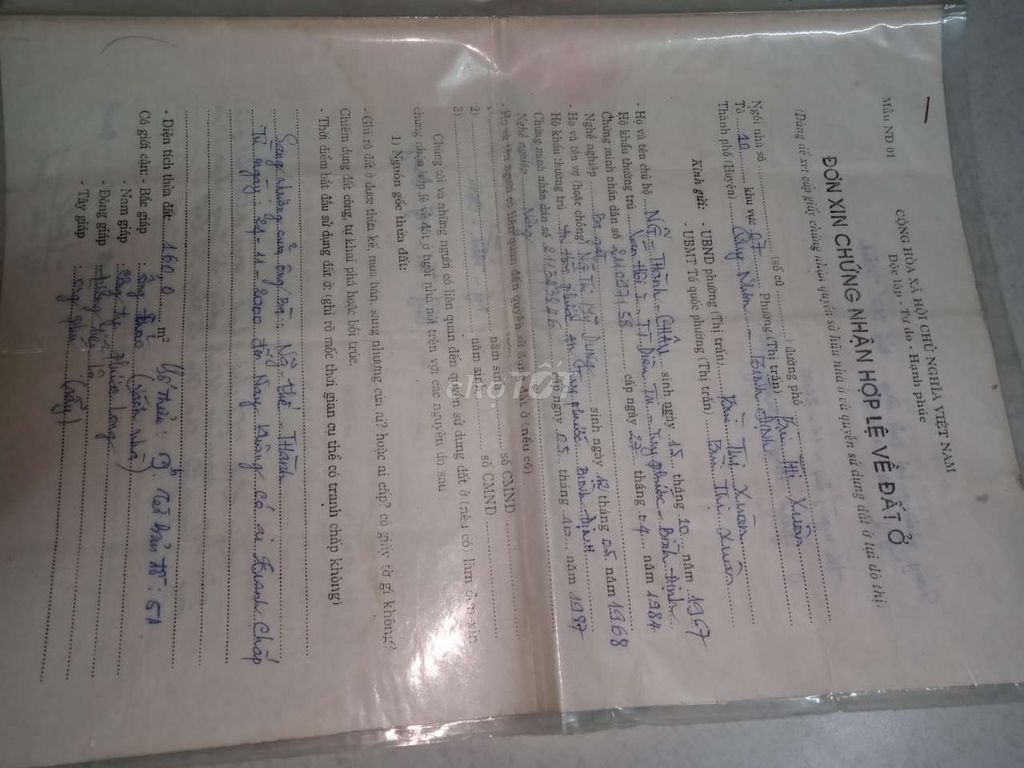 Mẫu NĐ 01
CỘNG HÒA XÃ HỘI CHỦ NGHĨA VIỆT NAM
Độc lập - Tự do - Hạnh phúc
ĐƠN XIN CHỨNG NHẬN HỢP LỆ VỀ ĐẤT Ở
(Dùng để xét cấp giấy chứng nhận quyền sở hữu nhà ở và quyền sử dụng đất ở tại đô thị)
Ngôi nhà số (số cũ ) đường phố Bùi Thị Xuân
Tổ 10 khu vực 07 Phường (Thị trấn)
Thành phố (Huyện) Quy Nhơn Bình Định
Kính gửi: - UBND phường (Thị trấn) Bùi Thị Xuân
- UBMT Tổ quốc phường (Thị trấn) Bùi Thị Xuân
- Họ và tên chủ hộ Thành CHÂU sinh ngày 15 tháng 10 năm 1967
Hộ khẩu thường trú Vân Hội I TT Diêu Trì - Tuy phước - Bình Định
Chứng minh nhân dân số 211017158 cấp ngày tháng 04 năm 1984
Nghề nghiệp
- Họ và tên vợ (hoặc chồng) Mỹ Dung sinh ngày 12 tháng 05 năm 1968
Hộ khẩu thường trú Bình Định
Chứng minh nhân dân số ngày 05 tháng 10 năm 1997
Nghề nghiệp Nông
- Họ và tên người có liên quan đến quyền sử dụng đất ở (nếu có)
năm sinh số CMND
2) năm sinh số CMND
3) năm sinh số CMND
Chúng tôi và những người có liên quan đến quyền sử dụng đất ở (nếu có) làm đơn xin
chứng nhận hợp lệ về đất ở ngôi nhà nói trên với các nguyên do sau:
1) Nguồn gốc thửa đất:
- Ghi rõ đất ở được thừa kế, mua bán, sang nhượng của ai? hoặc ai cấp? có giấy tờ gì không?
Chiếm dụng đất công, tự khai phá hoặc bồi trúc.
- Thời điểm bắt đầu sử dụng đất ở: (ghi rõ mốc thời gian cụ thể có tranh chấp không)
Sang nhượng của ông bà: Thế Thành
Từ ngày: 24-11-2000 đến Nay không có ai tranh chấp
- Diện tích thửa đất: 160,0 m² Số thửa: Tờ bản đồ: 51
Có giới cận: - Bắc giáp ông (vách nhà)
- Nam giáp Công ty Phước Long
- Đông giáp
- Tây giáp ông phú (rẫy)
chợTỐT